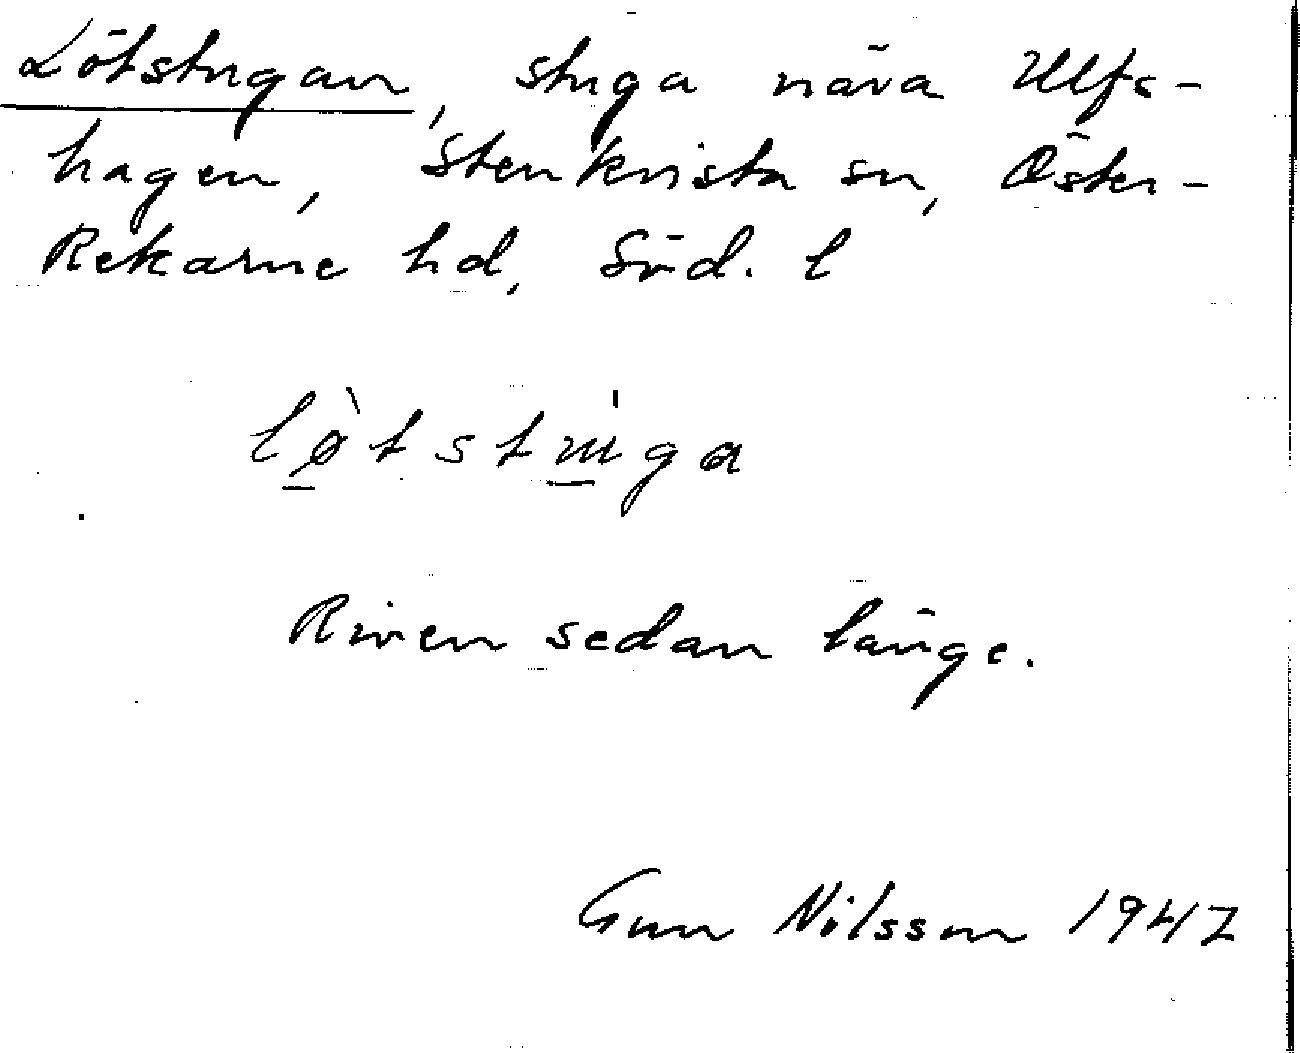 Lötstugan, stuga nära Ulfs-
hagen, Stenkvista sn, Öster-
Rekarne hd, Söd. l
lø̀tstuga
Riven sedan länge.
Gun Nilsson 1947